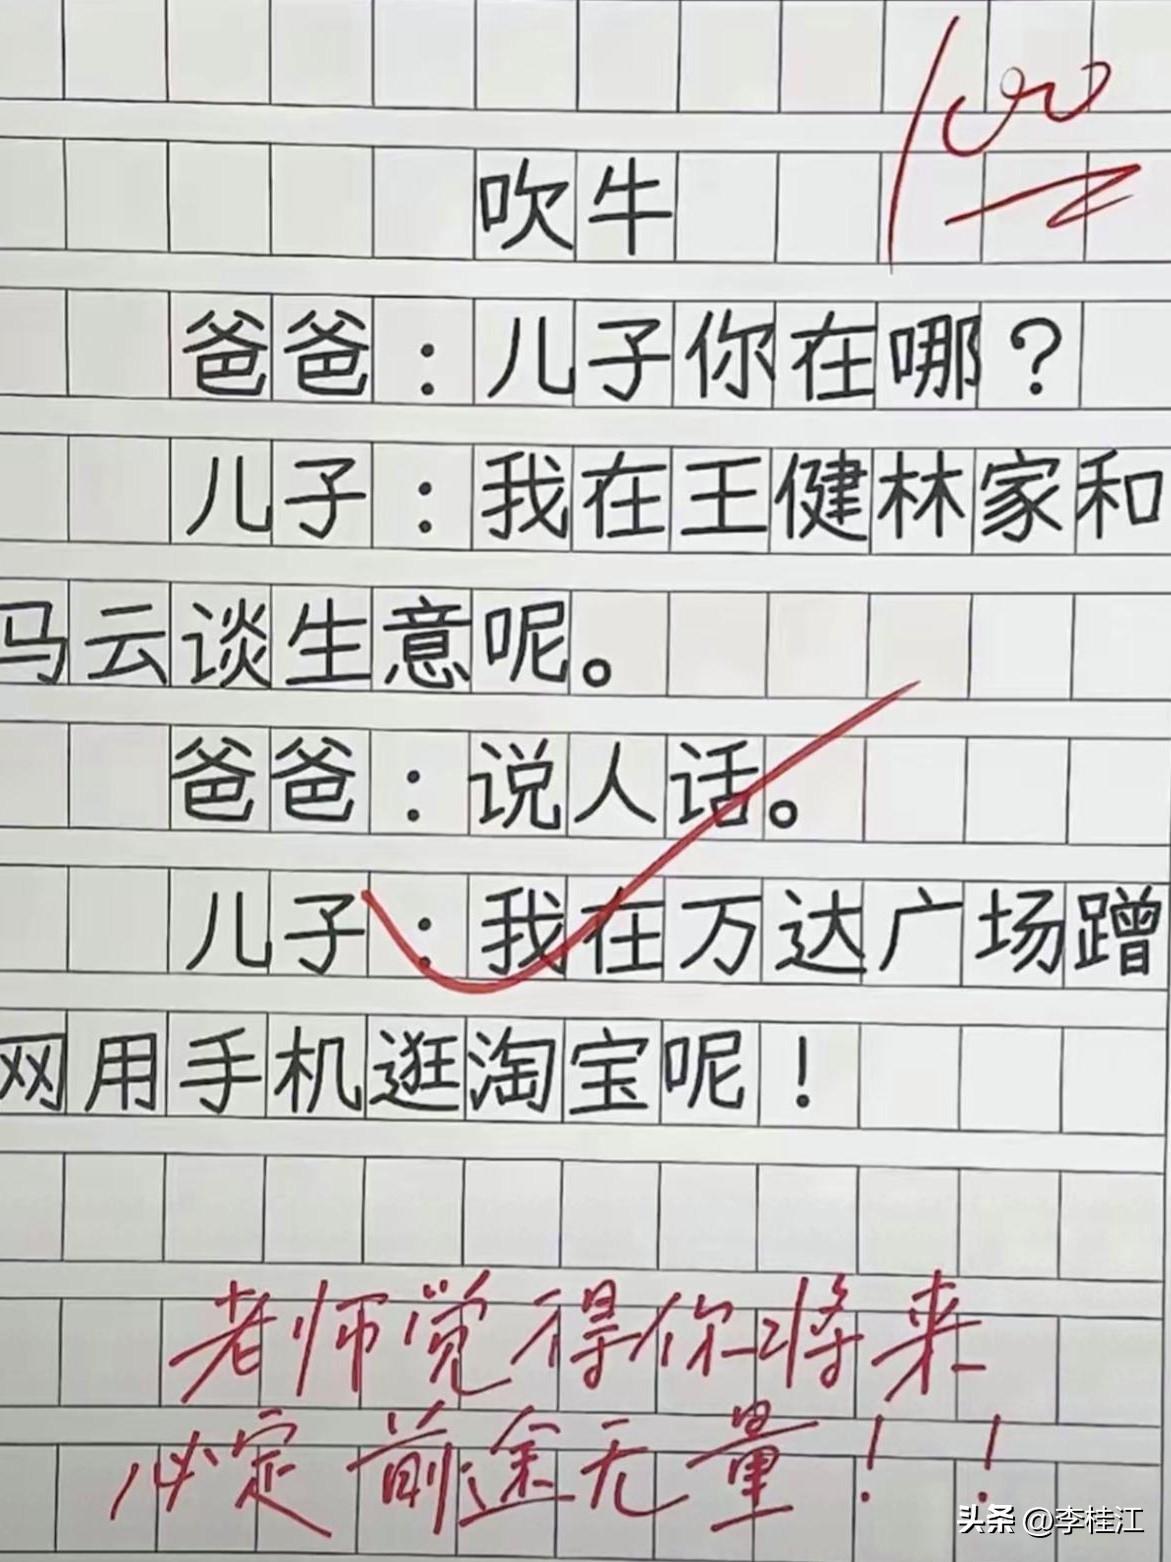 100
吹牛
爸爸：儿子你在哪？
儿子：我在王健林家和
马云谈生意呢。
爸爸：说人话。
儿子：我在万达广场蹭
网用手机逛淘宝呢！
老师觉得你将来
必定前途无量！！
头条 @李桂江